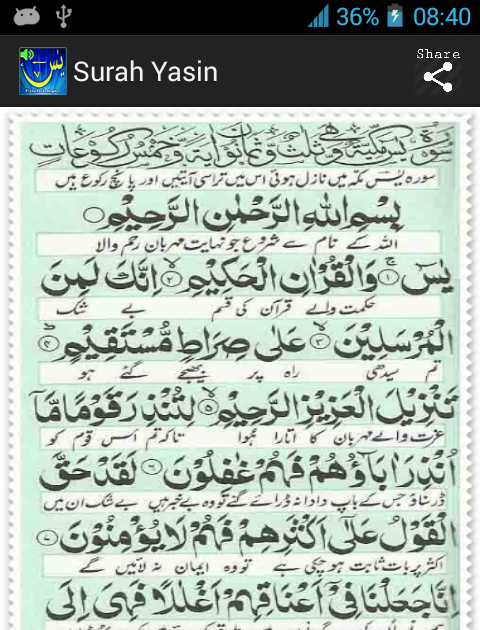 36% 08:40
Surah Yasin
Share
سورة يس مكية وهي ثلث وثمانون آية وخمس ركوعات
سورہ یٰسٓ مکہ میں نازل ہوئی اس میں تراسی آیتیں اور پانچ رکوع ہیں
بِسْمِ اللهِ الرَّحْمٰنِ الرَّحِيْمِ
اللہ کے نام سے شروع جو نہایت مہربان رحم والا
يٰسٓ ۝۱ وَالْقُرْاٰنِ الْحَكِيْمِ ۝۲ اِنَّكَ لَمِنَ
حکمت والے قرآن کی قسم بے شک
الْمُرْسَلِيْنَ ۝۳ عَلٰى صِرَاطٍ مُّسْتَقِيْمٍ ۝۴
تم سیدھی راہ پر بھیجے گئے ہو
تَنْزِيْلَ الْعَزِيْزِ الرَّحِيْمِ ۝۵ لِتُنْذِرَ قَوْمًا مَّآ
عزت والے مہربان کا اتارا ہوا تاکہ تم اس قوم کو
اُنْذِرَ اٰبَآؤُهُمْ فَهُمْ غٰفِلُوْنَ ۝۶ لَقَدْ حَقَّ
ڈر سناؤ جس کے باپ دادا نہ ڈرائے گئے تو وہ بے خبر ہیں بے شک ان میں
الْقَوْلُ عَلٰٓى اَكْثَرِهِمْ فَهُمْ لَا يُؤْمِنُوْنَ ۝۷
اکثر پر بات ثابت ہو چکی ہے تو وہ ایمان نہ لائیں گے
اِنَّا جَعَلْنَا فِيْٓ اَعْنَاقِهِمْ اَغْلٰلًا فَهِيَ اِلَى